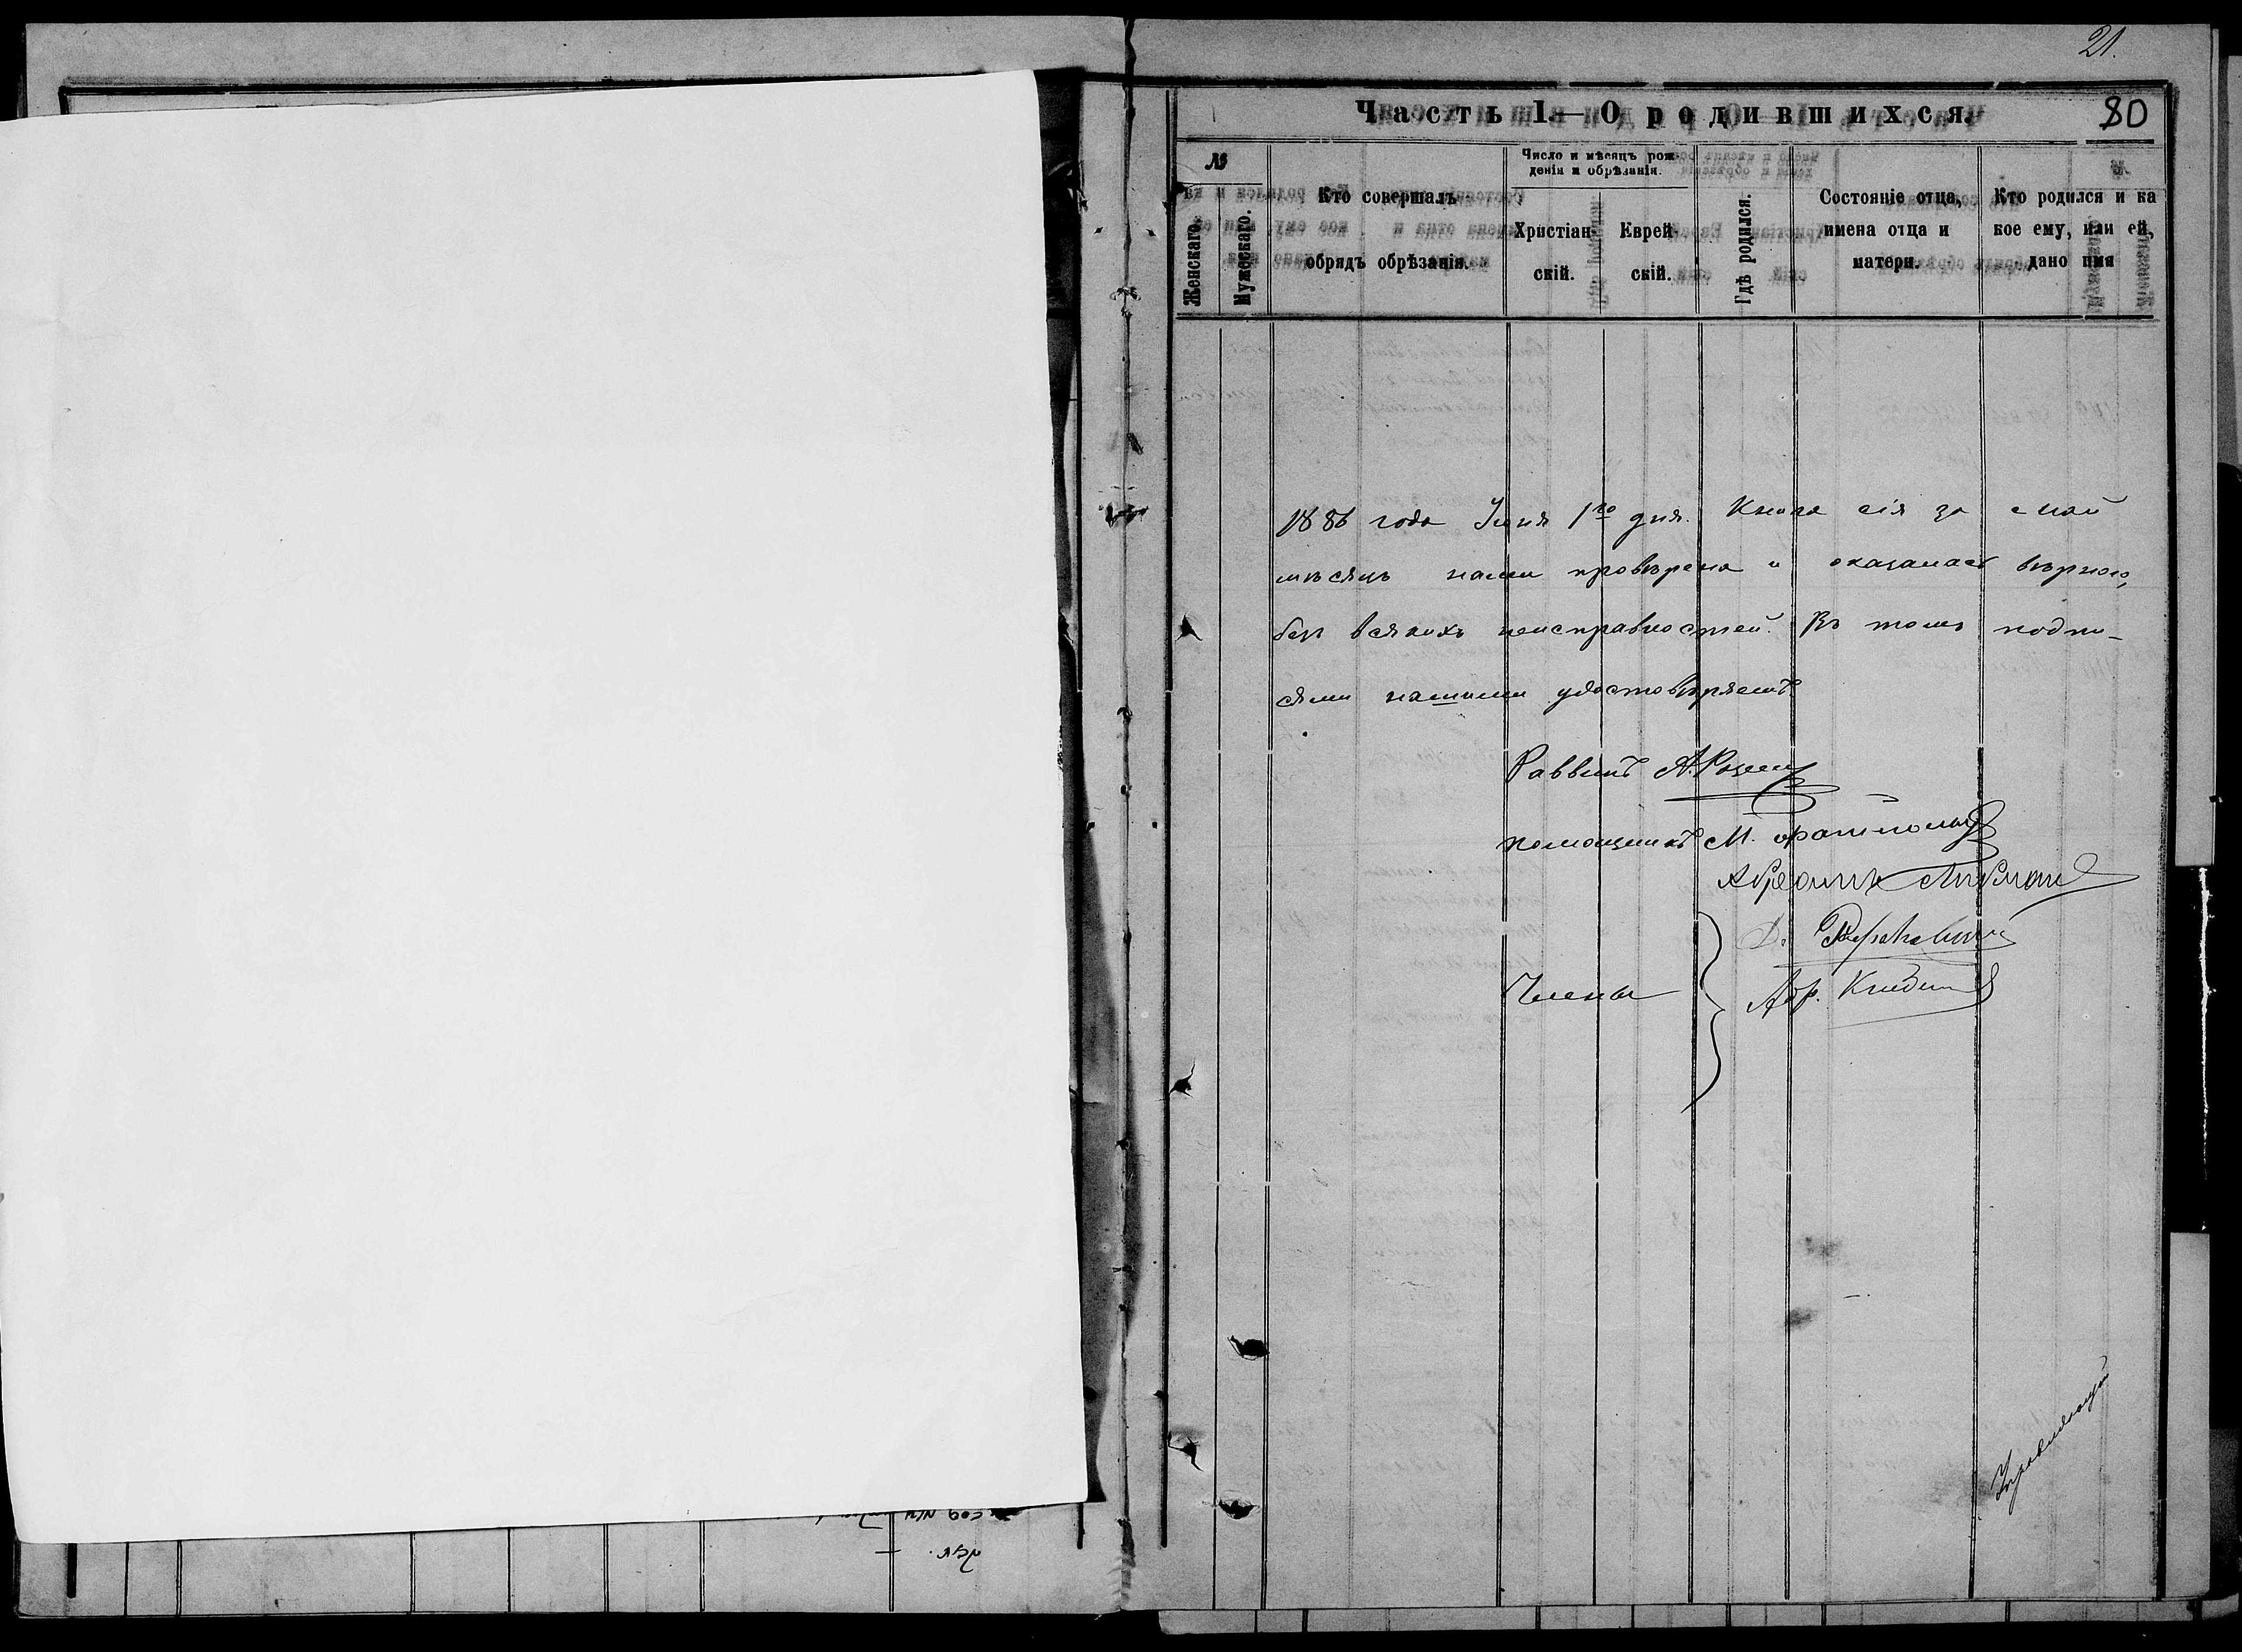 21.
Часть 1.—О родившихся.
80
№
Женскаго.
Мужескаго.
Кто совершалъ
обрядъ обрѣзанія.
Число и мѣсяцъ рож-
денія и обрѣзанія.
Христіан-
скій.
Еврей-
скій.
Гдѣ родился.
Состояніе отца,
имена отца и
матери.
Кто родился и ка
кое ему, или ей,
дано имя
1886 года Іюня 1го дня. Книга сія за май
мѣсяцъ нами провѣрена и оказалась вѣрною,
безъ всякихъ неисправностей. Въ томъ подпи-
сями нашими удостовѣряемъ.
Раввинъ А.
помощникъ М.
Члены
Абр.
Управляющій